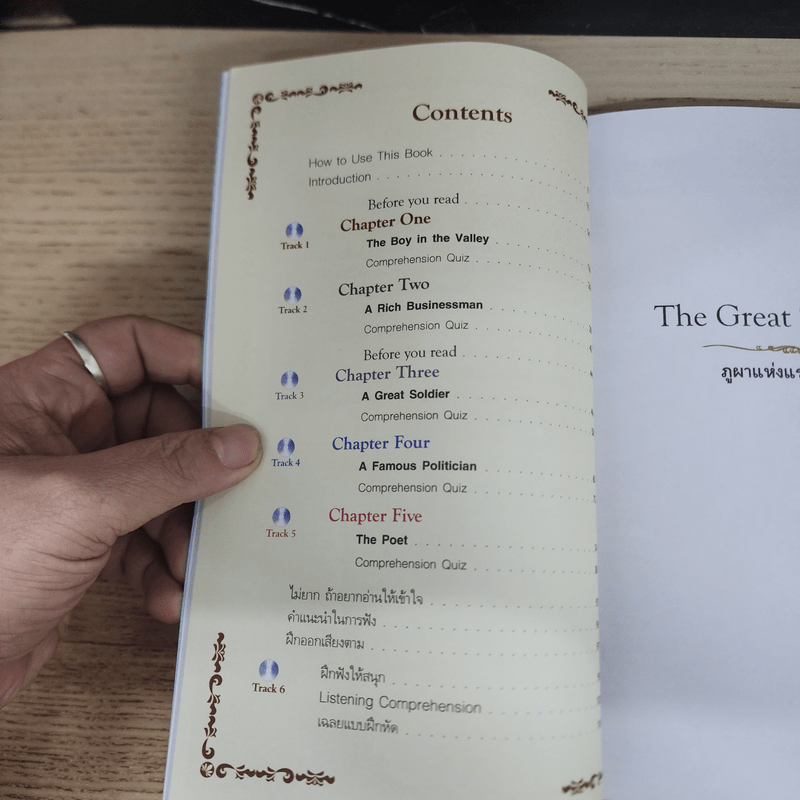 Contents
How to Use This Book
Introduction
Before you read
Chapter One
Track 1
The Boy in the Valley
Comprehension Quiz
Chapter Two
Track 2
A Rich Businessman
Comprehension Quiz
Before you read
Chapter Three
Track 3
A Great Soldier
Comprehension Quiz
Chapter Four
Track 4
A Famous Politician
Comprehension Quiz
Chapter Five
Track 5
The Poet
Comprehension Quiz
ไม่ยาก ถ้าอยากอ่านให้เข้าใจ
คำแนะนำในการฟัง
ฝึกออกเสียงตาม
ฝึกฟังให้สนุก
Track 6
Listening Comprehension
เฉลยแบบฝึกหัด
The Great
ภูผาแห่ง